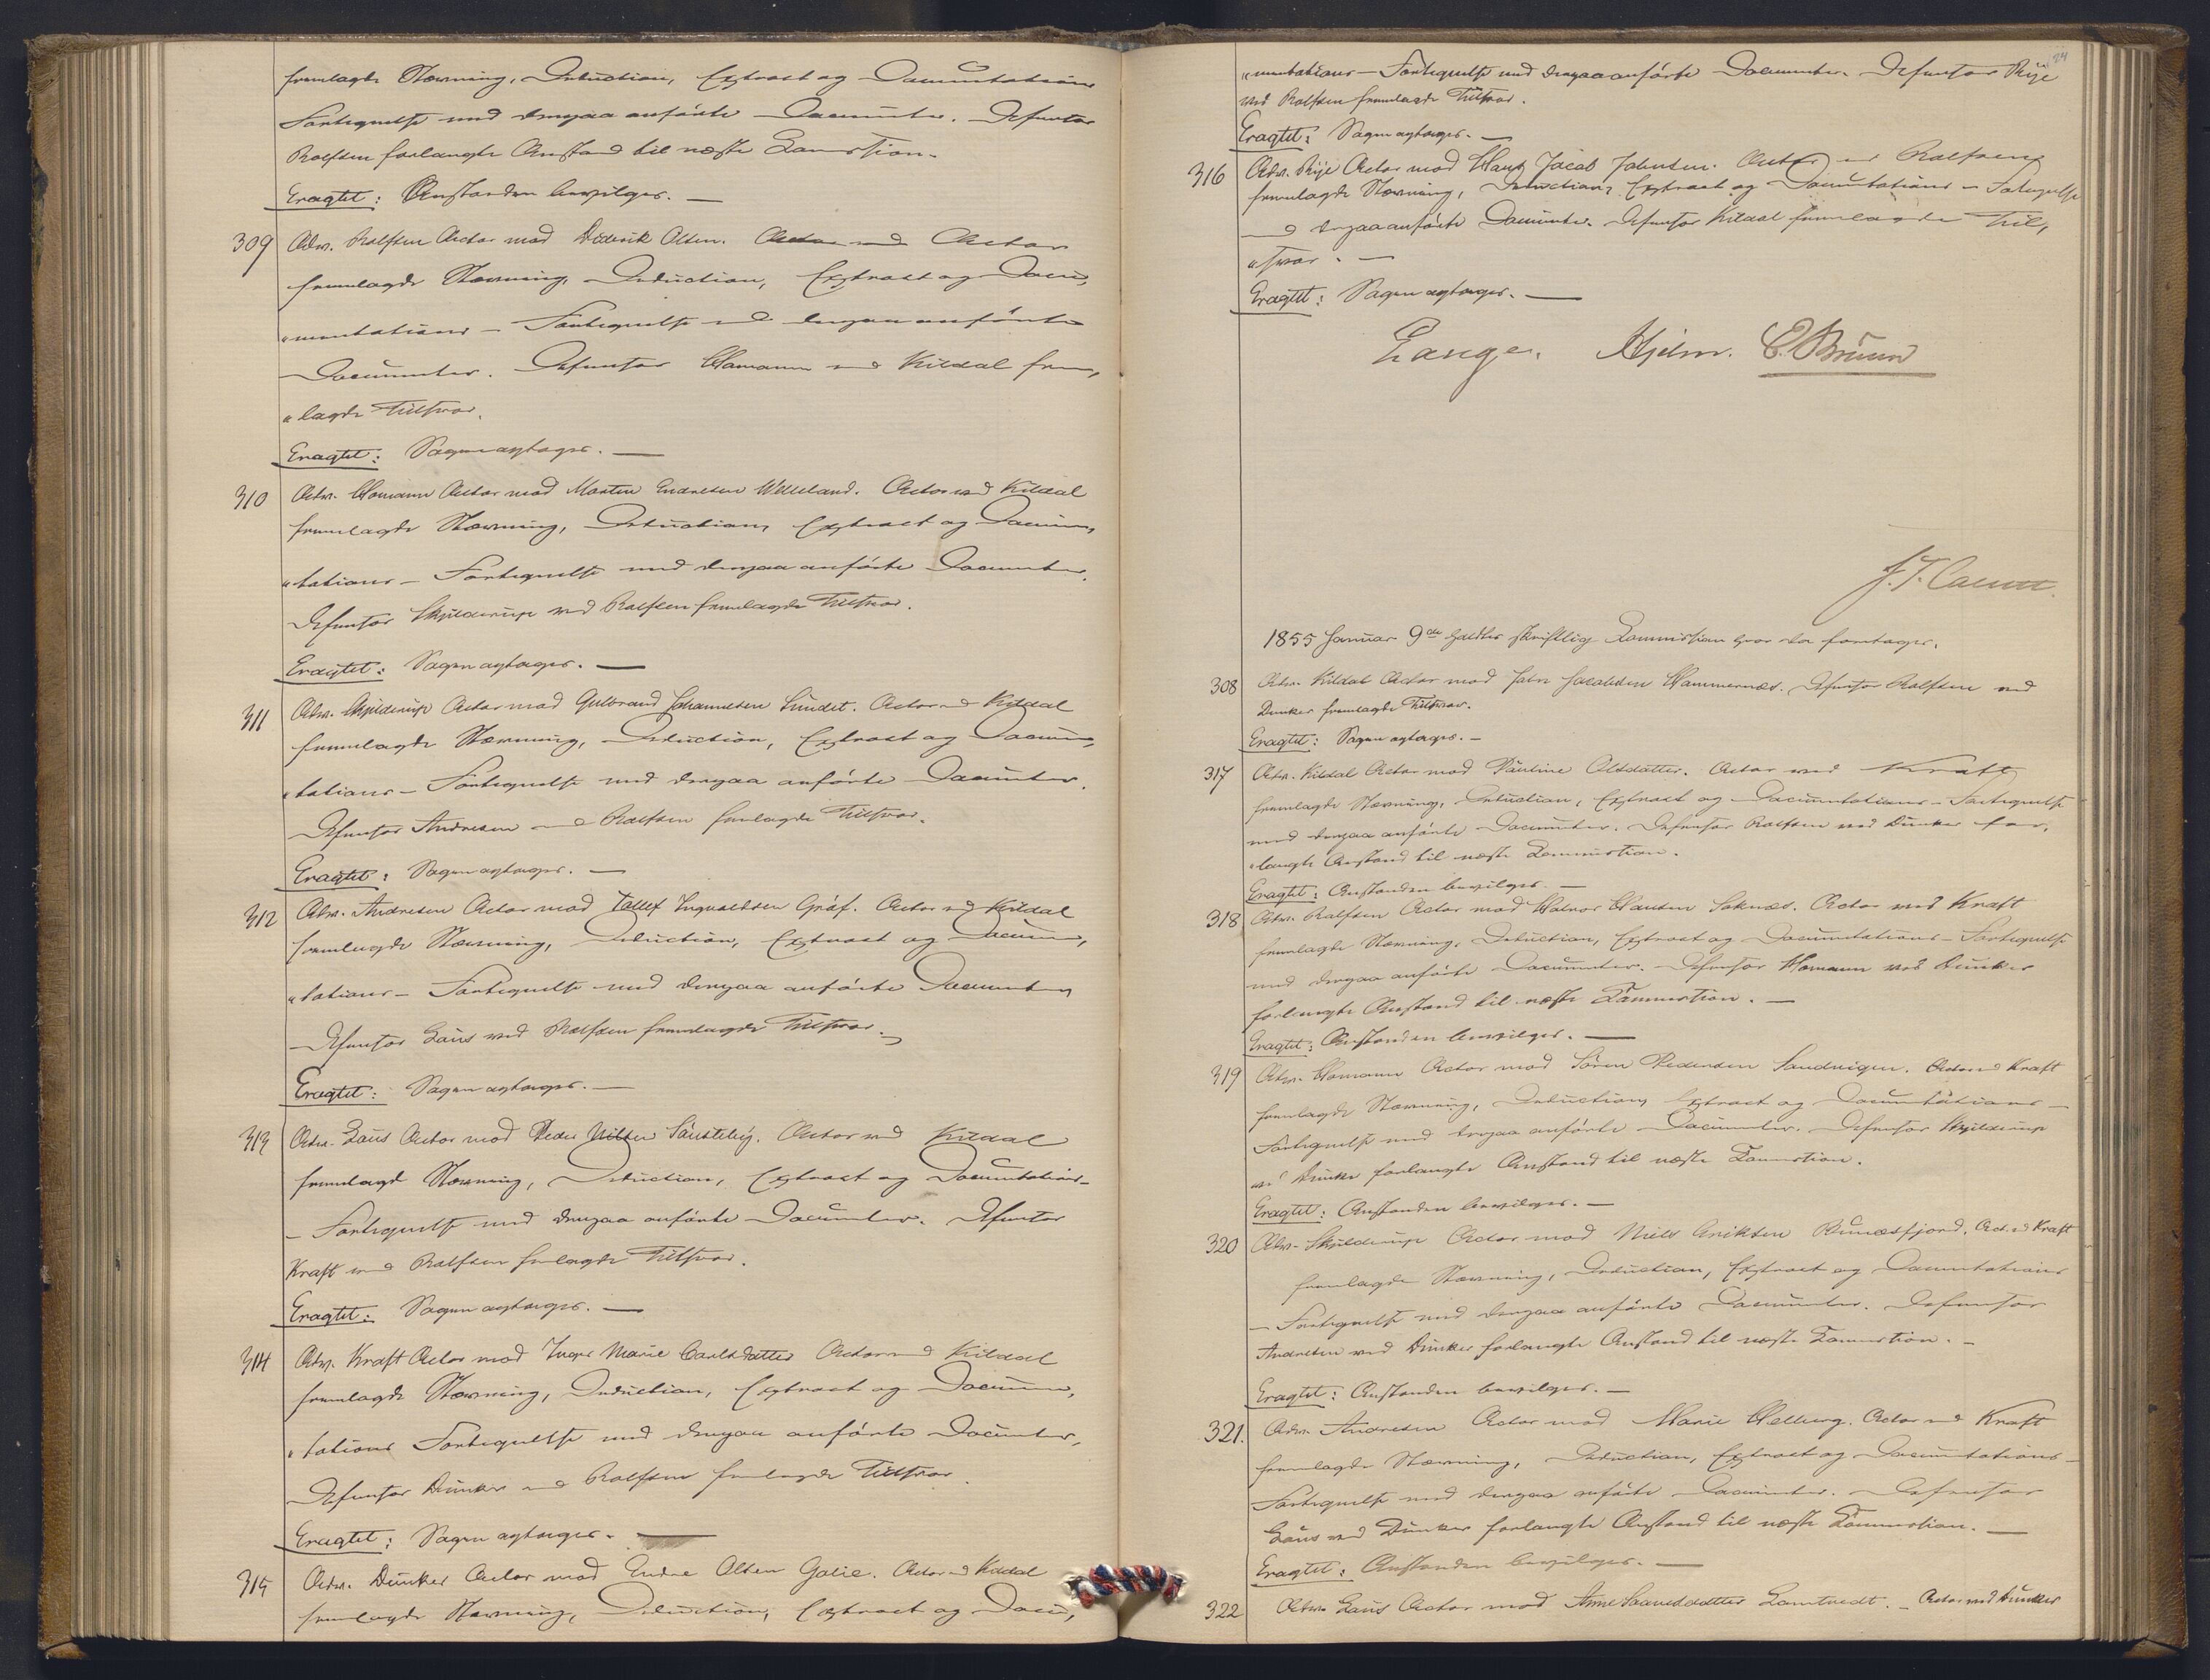 fremlagde Stævning, Deduction, Extract og Documentations
Fortegnelse med derpaa anførte Documenter. Defensor
Rolfsen forlangte Anstand til næste Session.
Eragtet: Anstanden bevilges. —
309 Adv. Rolfsen Actor mod Diderik Olsen. Actor
fremlagde Stævning, Deduction, Extract og Docu„
„mentations – Fortegnelse med derpaa anførte
Documenter. Defensor Homann ved Kildal frem„
„lagde Tilsvar.
Eragtet: Sagen optages. —
310 Adv. Homann Actor mod Morten Endresen Welleland. Actor ved Kildal
fremlagde Stævning, Deduction, Extract og Documen„
„tations – Fortegnelse med derpaa anførte Documenter.
Defensor Skjelderup ved Rolfsen fremlagde Tilsvar.
Eragtet: Sagen optages. —
311 Adv. Skjelderup Actor mod Gulbrand Johannesen Lundet. Actor ved Kildal
fremlagde Stævning, Deduction, Extract og Documen„
„tations – Fortegnelse med derpaa anførte Documenter.
Defensor Andresen ved Rolfsen fremlagde Tilsvar.
Eragtet: Sagen optages. —
312 Adv. Andresen Actor mod Tollef Ingvaldsen Gráf. Actor ved Kildal
fremlagde Stævning, Deduction, Extract og Documen„
„tations – Fortegnelse med derpaa anførte Documenter
Defensor Laus ved Rolfsen fremlagde Tilsvar.
Eragtet: Sagen optages. —
313 Adv. Laus Actor mod Peder Nilsen. Actor ved Kildal
fremlagde Stævning, Deduction, Extract og Documentations–
– Fortegnelse med derpaa anførte Documenter. Defensor
Kraft ved Rolfsen fremlagde Tilsvar.
Eragtet: Sagen optages. —
314 Adv. Kraft Actor mod Inger Marie Carlsdatter Actor ved Kildal
fremlagde Stævning, Deduction, Extract og Documen„
„tations Fortegnelse med derpaa anførte Documenter,
Defensor Dunker ved Rolfsen fremlagde Tilsvar.
Eragtet: Sagen optages. —
315 Adv. Dunker Actor mod Endre Olsen Golie. Actor ved Kildal
fremlagde Stævning, Deduction, Extract og Docu„
„mentations – Fortegnelse med derpaa anførte Documenter. Defensor Rije
ved Rolfsen fremlagde Tilsvar.
Eragtet: Sagen optages. —
316 Adv. Rije Actor mod Hans Jacob Johnsen. Actor ved Rolfsen
fremlagde Stævning, Deduction, Extract og Documentations – Fortegnelse
med derpaa anførte Documenter. Defensor Kildal fremlagde Til„
„svar. —
Eragtet: Sagen optages. —
Lange. Hjelm. C. Bruun
1855 Januar 9de holdtes skriftlig Session hvor da foretoges.
308 Adv. Kildal Actor mod John Jacobsen Hammernæs. Defensor Rolfsen ved
Dunker fremlagde Tilsvar.
Eragtet: Sagen optages. –
317 Adv. Kildal Actor mod Pauline Olsdatter. Actor ved Kraft
fremlagde Stævning, Deduction, Extract og Documentations – Fortegnelse
med derpaa anførte Documenter. Defensor Rolfsen ved Dunker for„
„langte Anstand til næste Session.
Eragtet: Anstanden bevilges. —
318 Adv. Rolfsen Actor mod Halvor Hansen Soknæs. Actor ved Kraft
fremlagde Stævning, Deduction, Extract og Documentations – Fortegnelse
med derpaa anførte Documenter. Defensor Homann ved Dunker
forlangte Anstand til næste Session. —
Eragtet: Anstanden bevilges. —
319 Adv. Homann Actor mod Sören Pedersen Sandvigen. Actor ved Kraft
fremlagde Stævning, Deduction, Extract og Documentations –
Fortegnelse med derpaa anførte Documenter. Defensor Skjelderup
ved Dunker forlangte Anstand til næste Session.
Eragtet: Anstanden bevilges. —
320 Adv. Skjelderup Actor mod Niels Eriksen. Act. ved Kraft
fremlagde Stævning, Deduction, Extract og Documentations
– Fortegnelse med derpaa anførte Documenter. Defensor
Andresen ved Dunker forlangte Anstand til næste Session. –
Eragtet: Anstanden bevilges. —
321. Adv. Andresen Actor mod Marie Helberg. Actor ved Kraft
fremlagde Stævning, Deduction, Extract og Documentations –
Fortegnelse med derpaa anførte Documenter. Defensor
Laus ved Dunker forlangte Anstand til næste Session. —
Eragtet: Anstanden bevilges. —
322 Adv. Laus Actor mod Anne. – Actor ved Dunker